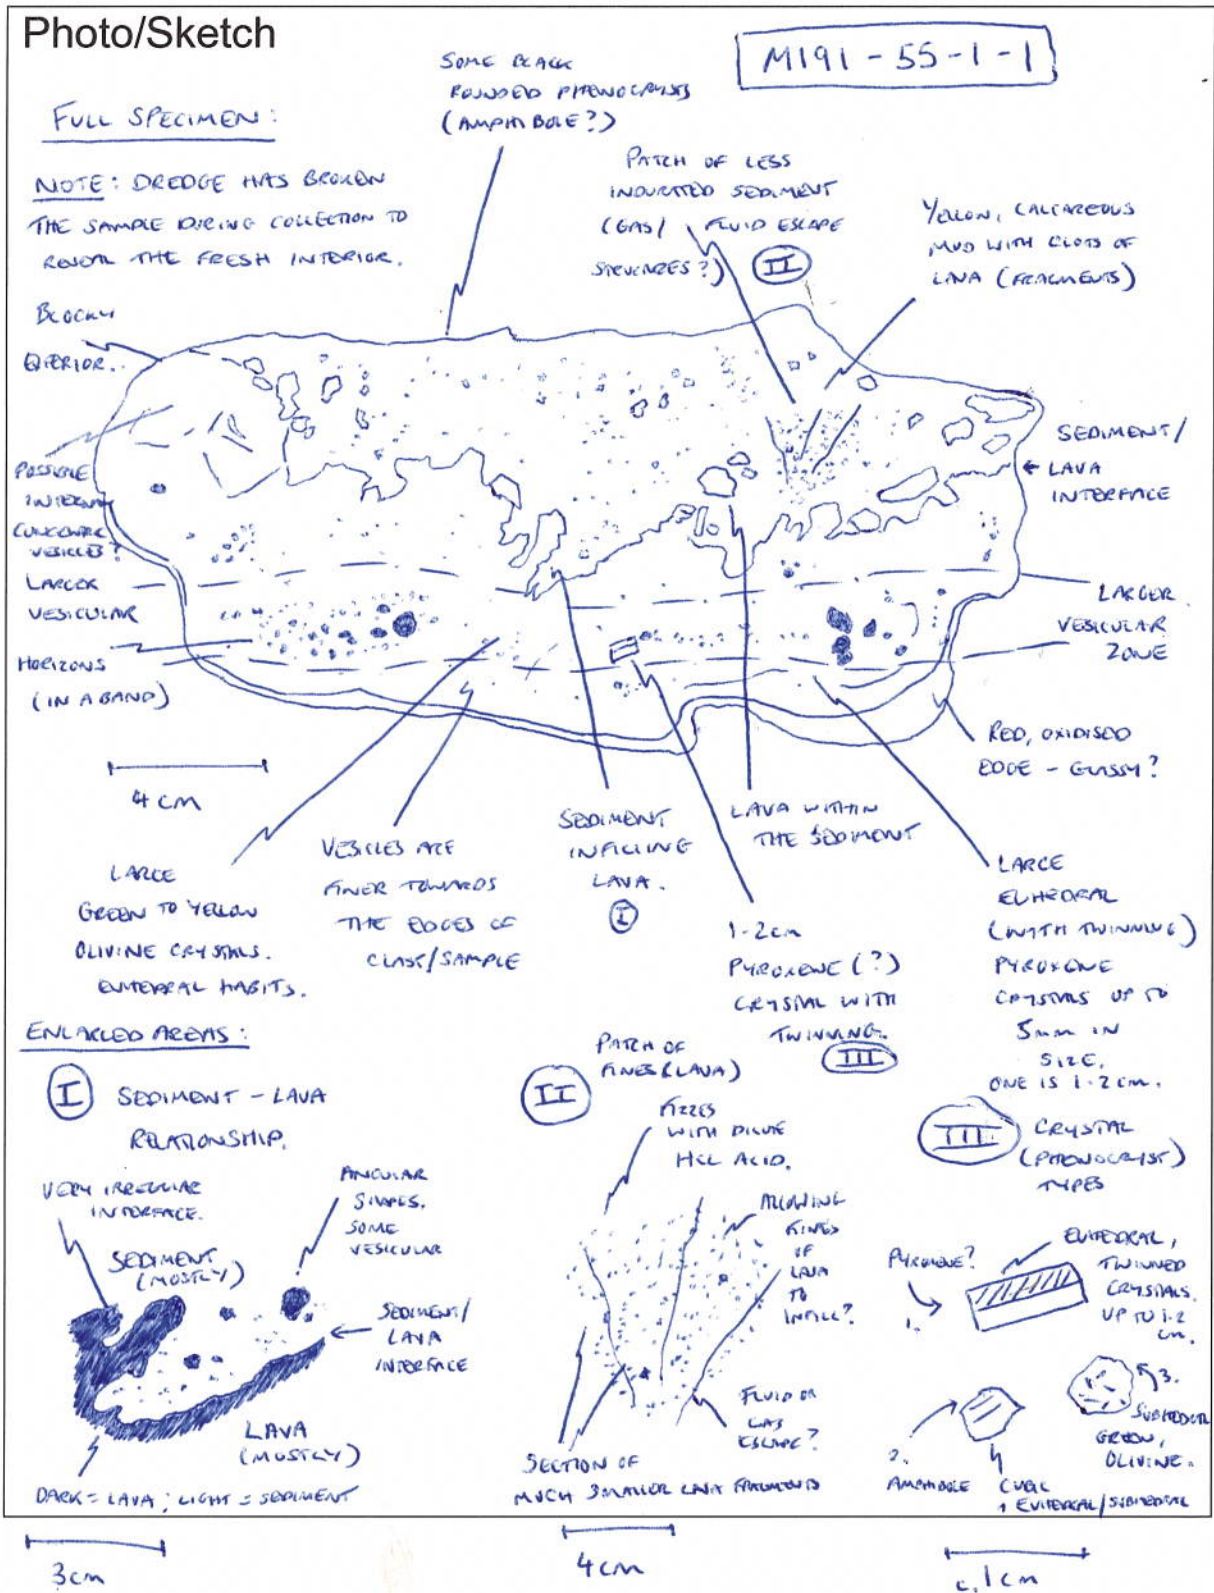 Photo/Sketch
M191-55-1-1
FULL SPECIMEN:
NOTE: DREDGE HAS BROKEN
THE SAMPLE DURING COLLECTION TO
REVEAL THE FRESH INTERIOR.
SOME BLACK
ROUNDED PHENOCRYSTS
(AMPHIBOLE?)
PATCH OF LESS
INDURATED SEDIMENT
(GAS/ FLUID ESCAPE
STRUCTURES?)
II
YELLOW, CALCAREOUS
MUD WITH CLOTS OF
LAVA (FRAGMENTS)
BLOCKY
EXTERIOR.
POSSIBLE
INTERNAL
CONCENTRIC
VESICLES?
LARGER
VESICULAR
HORIZONS
(IN A BAND)
SEDIMENT/
LAVA
INTERFACE
LARGER
VESICULAR
ZONE
RED, OXIDISED
EDGE - GLASSY?
4 cm
LARGE
GREEN TO YELLOW
OLIVINE CRYSTALS.
EUHEDRAL HABITS.
VESICLES ARE
FINER TOWARDS
THE EDGES OF
CLAST/SAMPLE
SEDIMENT
INFILLING
LAVA.
I
LAVA WITHIN
THE SEDIMENT
1-2cm
PYROXENE (?)
CRYSTAL WITH
TWINNING.
III
LARGE
EUHEDRAL
(WITH TWINNING)
PYROXENE
CRYSTALS UP TO
5mm IN
SIZE.
ONE IS 1-2 cm.
ENLARGED AREAS:
I SEDIMENT - LAVA
RELATIONSHIP.
VERY IRREGULAR
INTERFACE.
ANGULAR
SHAPES.
SOME
VESICULAR
SEDIMENT
(MOSTLY)
SEDIMENT/
LAVA
INTERFACE
LAVA
(MOSTLY)
DARK = LAVA; LIGHT = SEDIMENT
3cm
II
PATCH OF
FINES (LAVA)
FIZZES
WITH DILUTE
HCL ACID.
ALLOWING
FINES
OF
LAVA
TO
INFILL?
FLUID OR
GAS
ESCAPE?
SECTION OF
MUCH SMALLER LAVA FRAGMENTS
4cm
III CRYSTAL
(PHENOCRYST)
TYPES
PYROXENE?
1.
EUHEDRAL,
TWINNED
CRYSTALS.
UP TO 1-2
cm.
2.
AMPHIBOLE
EUHEDRAL/SUBHEDRAL
3.
SUBHEDRAL
GREEN,
OLIVINE.
c. 1cm